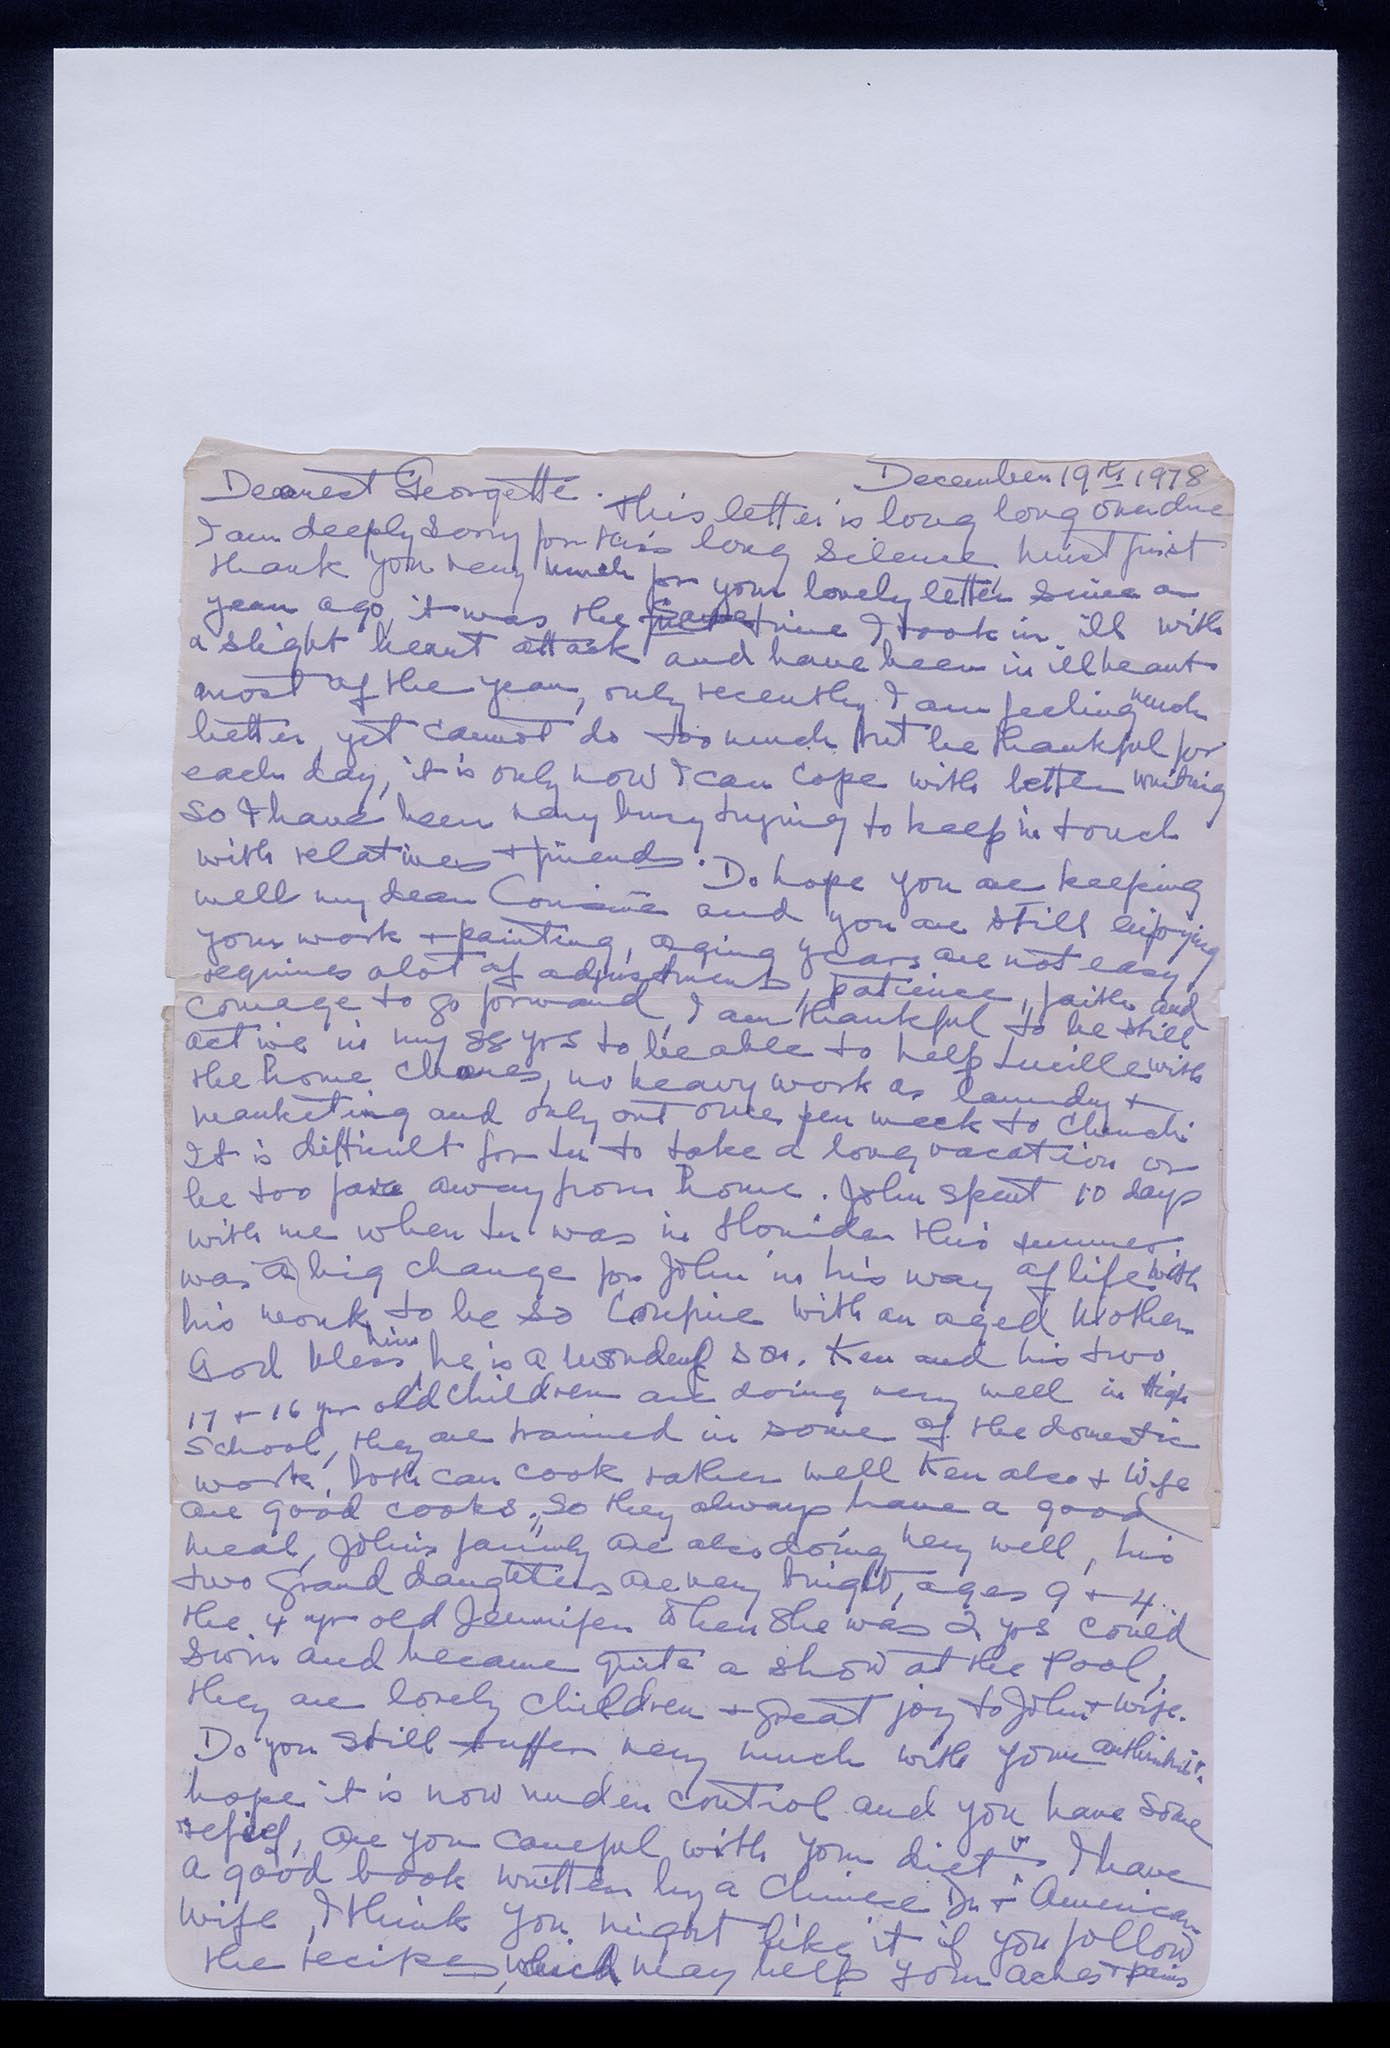 December 19th 1978
Dearest Georgette. This letter is long long overdue
I am deeply sorry for this long silence must first
thank you very much for your lovely letter since a
year ago, it was the same time I took in ill with
a slight heart attack and have been in ill heart
most of the year, only recently I am feeling much
better, yet cannot do too much but be thankful for
each day, it is only now I can cope with letter writing
so I have been very busy trying to keep in touch
with relatives + friends. Do hope you are keeping
well my dear Cousine and you are still enjoying
your work + painting, aging years are not easy
requires alot of adjustments, patience, faith and
courage to go forward, I am thankful to be still
active in my 88 yrs to be able to help Lucille with
the home chores, no heavy work as laundry +
marketing and only out once per week to Church
It is difficult for Lu to take a long vacation or
be too far away from home. John spent 10 days
with me when Lu was in Florida this summer
was a big change for John in his way of life with
his work to be so confine with an aged Mother
God bless him, he is a wonderful son. Ken and his two
17 + 16 yr old children are doing very well in High
School, they are trained in some of the domestic
work, both can cook rather well Ken also + wife
are good cooks, so they always have a good
meal, John's family are also doing very well, his
two Grand daughters are very bright, ages 9 + 4
the 4 yr old Jennifer when she was 2 yrs could
swim and became quite a show at the Pool,
they are lovely children + great joy to John + wife.
Do you still suffer very much with your
hope it is now under control and you have some
relief, are you careful with your diet? I have
a good book written by a Chinese Dr + American
wife, I think you might like it if you follow
the recipes, which may help your aches + pains